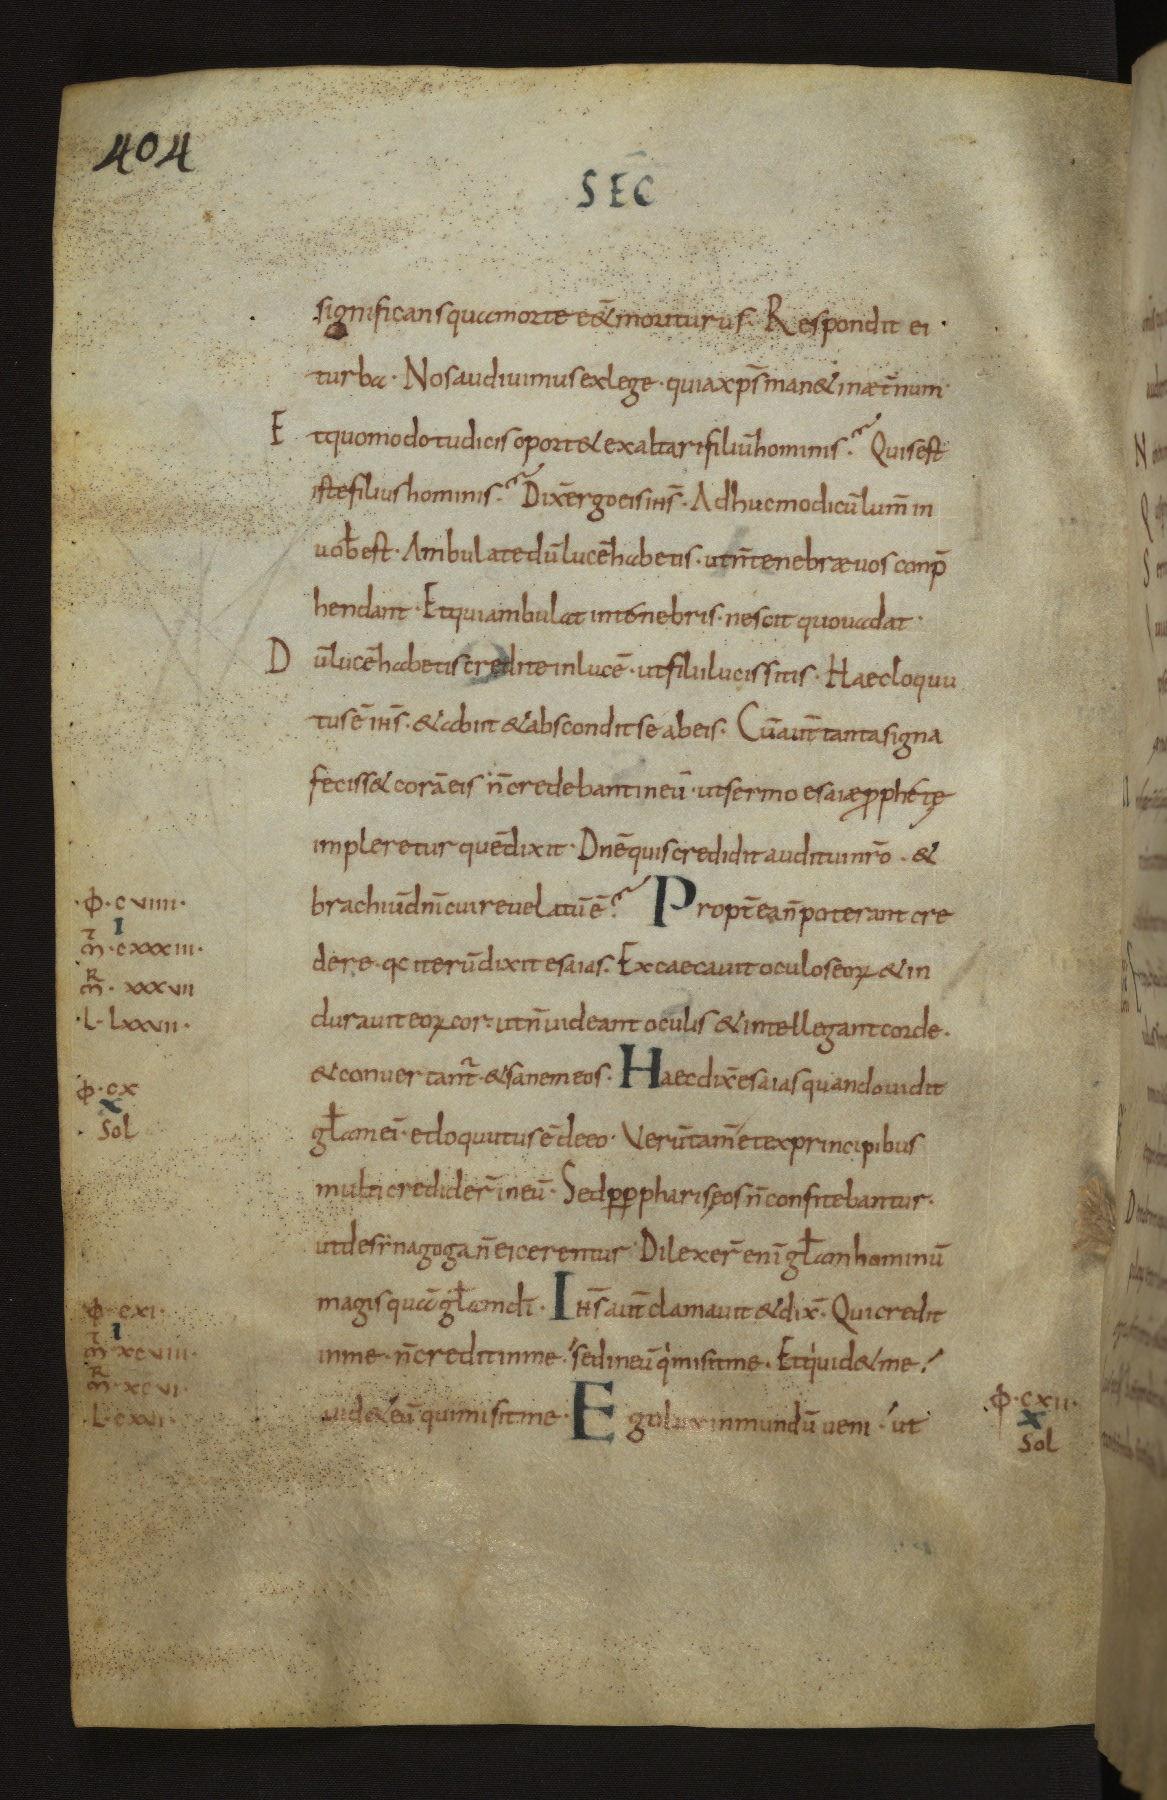 404
SEC̄
significans qua morte e&̄ moriturus. Respondit ei
turba. Nos audiuimus ex lege. quia xp̄s man& in æt̄num
Et quomodo tu dicis oport& exaltari filiū hominis. Quis est
iste filius hominis. Dix̄ ergo eis ih̄s. Adhuc modicū lum̄ in
uob̄ est. Ambulate dū lucē habetis. ut n̄ tenebræ uos conp̄
hendant. Et qui ambulat in tenebris. nescit quo uadat.
Dū lucē habetis credite in lucē. ut filii lucis sitis. Haec loquu
tus ē ih̄s. & abiit & abscondit se ab eis. Cū aut̄ tanta signa
feciss& corā eis n̄ credebant in eū. ut sermo esaiæ ꝓphetę
impleretur quē dixit. Dn̄e quis credidit auditui nr̄o. &
brachiū dn̄i cui reuelatū ē? Propt̄ea n̄ poterant cre
dere. qc iterū dixit esaias. Excaecauit oculos eoꝝ & in
durauit eoꝝ cor. ut n̄ uideant oculis & intellegant corde.
& conuertant̄. & sanem eos. Haec dix̄ esaias quando uidit
gl̄am ei. et loquutus ē de eo. Verūtam̄ et ex principibus
multi credider̄ in eū. Sed ꝓp phariseos n̄ confitebantur.
ut de synagoga n̄ eicerentur. Dilexer̄ eni gl̄am hominū
magis quā gl̄am dī. Ih̄s aut̄ clamauit & dix̄. Qui credit
in me. n̄ credit in me. sed in eū qi misit me. Et qi uid& me.
uid& eū qui misit me. Ego lux in mundū ueni. ut
ϕ. cviiii.
I
m̄. cxxxiii.
m̄. xxxvii
L. lxxvii.
ϕ. cx
x
Sol
ϕ. cxi.
I
m̄. xcviii.
m̄. xcvi.
L. cxvi.
ϕ. cxii.
x
Sol